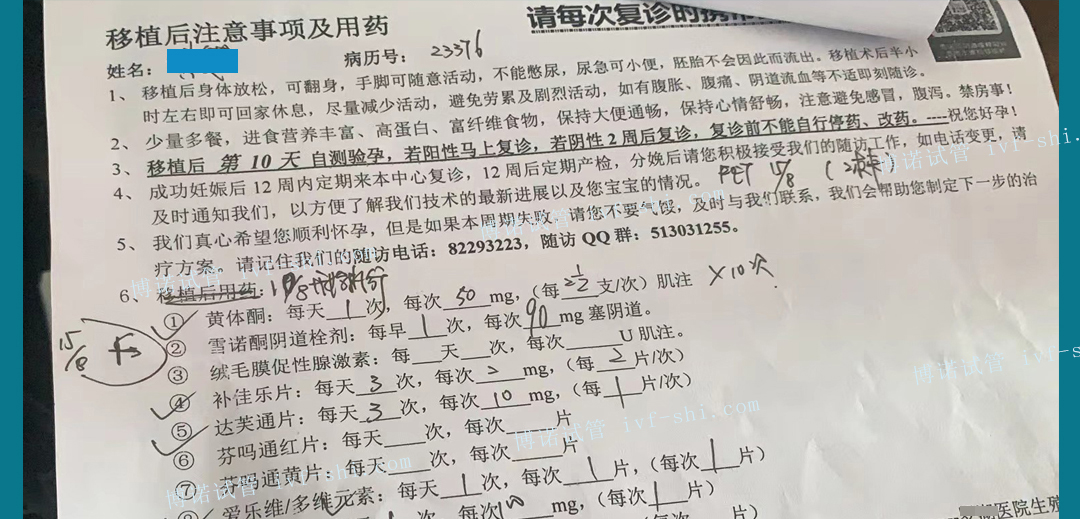 移植后注意事项及用药
请每次复诊时携
姓名：
病历号：23376
1、移植后身体放松，可翻身，手脚可随意活动，不能憋尿，尿急可小便，胚胎不会因此而流出。移植术后半小
时左右即可回家休息，尽量减少活动，避免劳累及剧烈活动，如有腹胀、腹痛、阴道流血等不适即刻随诊。
2、少量多餐，进食营养丰富、高蛋白、富纤维食物，保持大便通畅，保持心情舒畅，注意避免感冒，腹泻。禁房事！
3、移植后 第 10 天 自测验孕，若阳性马上复诊，若阴性 2 周后复诊，复诊前不能自行停药、改药。----祝您好孕！
4、成功妊娠后 12 周内定期来本中心复诊，12 周后定期产检，分娩后请您积极接受我们的随访工作，如电话变更，请
及时通知我们，以方便了解我们技术的最新进展以及您宝宝的情况。 15/8
5、我们真心希望您顺利怀孕，但是如果本周期失败，请您不要气馁，及时与我们联系，我们会帮助您制定下一步的治
疗方案。请记住我们的随访电话：82293223，随访 QQ 群：513031255。
6、移植后用药：
① 黄体酮：每天1次，每次50mg，（每 支/次）肌注 ×10次
② 雪诺酮阴道栓剂：每早1次，每次90mg 塞阴道。
15/8
③ 绒毛膜促性腺激素：每 天 次，每次 U 肌注。
④ 补佳乐片：每天3次，每次2mg，（每2片/次）
⑤ 达芙通片：每天3次，每次10mg，（每1片/次）
⑥ 芬吗通红片：每天 次，每次 片
⑦ 芬吗通黄片：每天 次，每次 片
爱乐维/多维元素：每天1次，每次1片，（每次1片）
次，每次100mg，（每次1片）
医院生殖
博诺试管 ivf-shi.com
博诺试管 ivf-shi.com
博诺试管 ivf-shi.com
博诺试管 ivf-shi.com
博诺试管 ivf-shi.com
博诺试管 ivf-sh